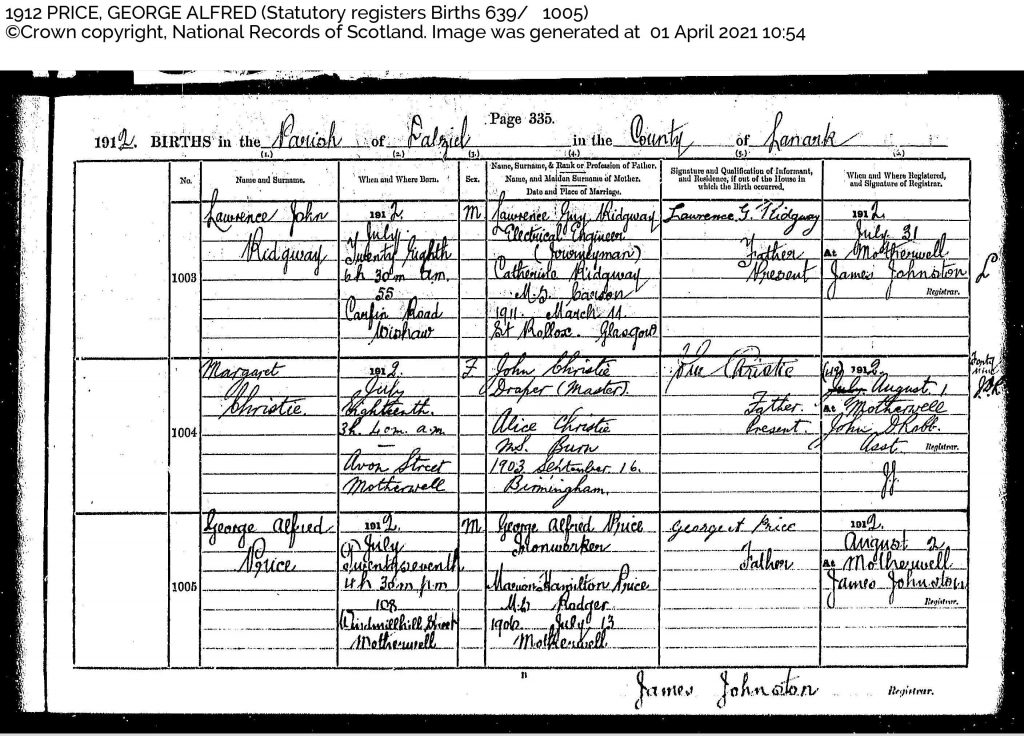 1912 PRICE, GEORGE ALFRED (Statutory registers Births 639/ 1005)
©Crown copyright, National Records of Scotland. Image was generated at 01 April 2021 10:54
Page 335.
1912. BIRTHS in the Parish of Dalziel in the County of Lanark
(1.) (2.) (3.) (4.) (5.)
No.
Name and Surname.
When and Where Born.
Sex.
Name, Surname, & Rank or Profession of Father.
Name, and Maiden Surname of Mother.
Date and Place of Marriage.
Signature and Qualification of Informant,
and Residence, if out of the House in
which the Birth occurred.
When and Where Registered,
and Signature of Registrar.
1003
Lawrence John
Ridgway
1912.
July
Twenty Eighth
6h 30m a.m.
55
Carfin Road
Wishaw
M
Lawrence Guy Ridgway
Electrical Engineer
(Journeyman)
Catherine Ridgway
M.S. Carson
1911. March 11
St Rollox. Glasgow
Lawrence G. Ridgway
Father
Present
1912
July 31
At Motherwell
James Johnston
Registrar.
1004
Margaret
Christie.
1912.
July
Eighteenth.
3h. 40m. a.m.
Avon Street
Motherwell
F
John Christie
Draper (Master).
Alice Christie
M.S. Burn
1903 September 16.
Birmingham.
John Christie
Father.
Present.
(49) 1912.
July August 1
At Motherwell
John D Robb.
Asst. Registrar.
JJ
Forty
nine
1005
George Alfred
Price
1912.
July
Twenty seventh
4h 30m p.m
108
Windmillhill Street
Motherwell
M
George Alfred Price
Ironworker
Marion Hamilton Price
M.S. Rodger
1906. July 13
Motherwell
George A Price
Father
1912.
August 2
At Motherwell
James Johnston
Registrar.
James Johnston Registrar.